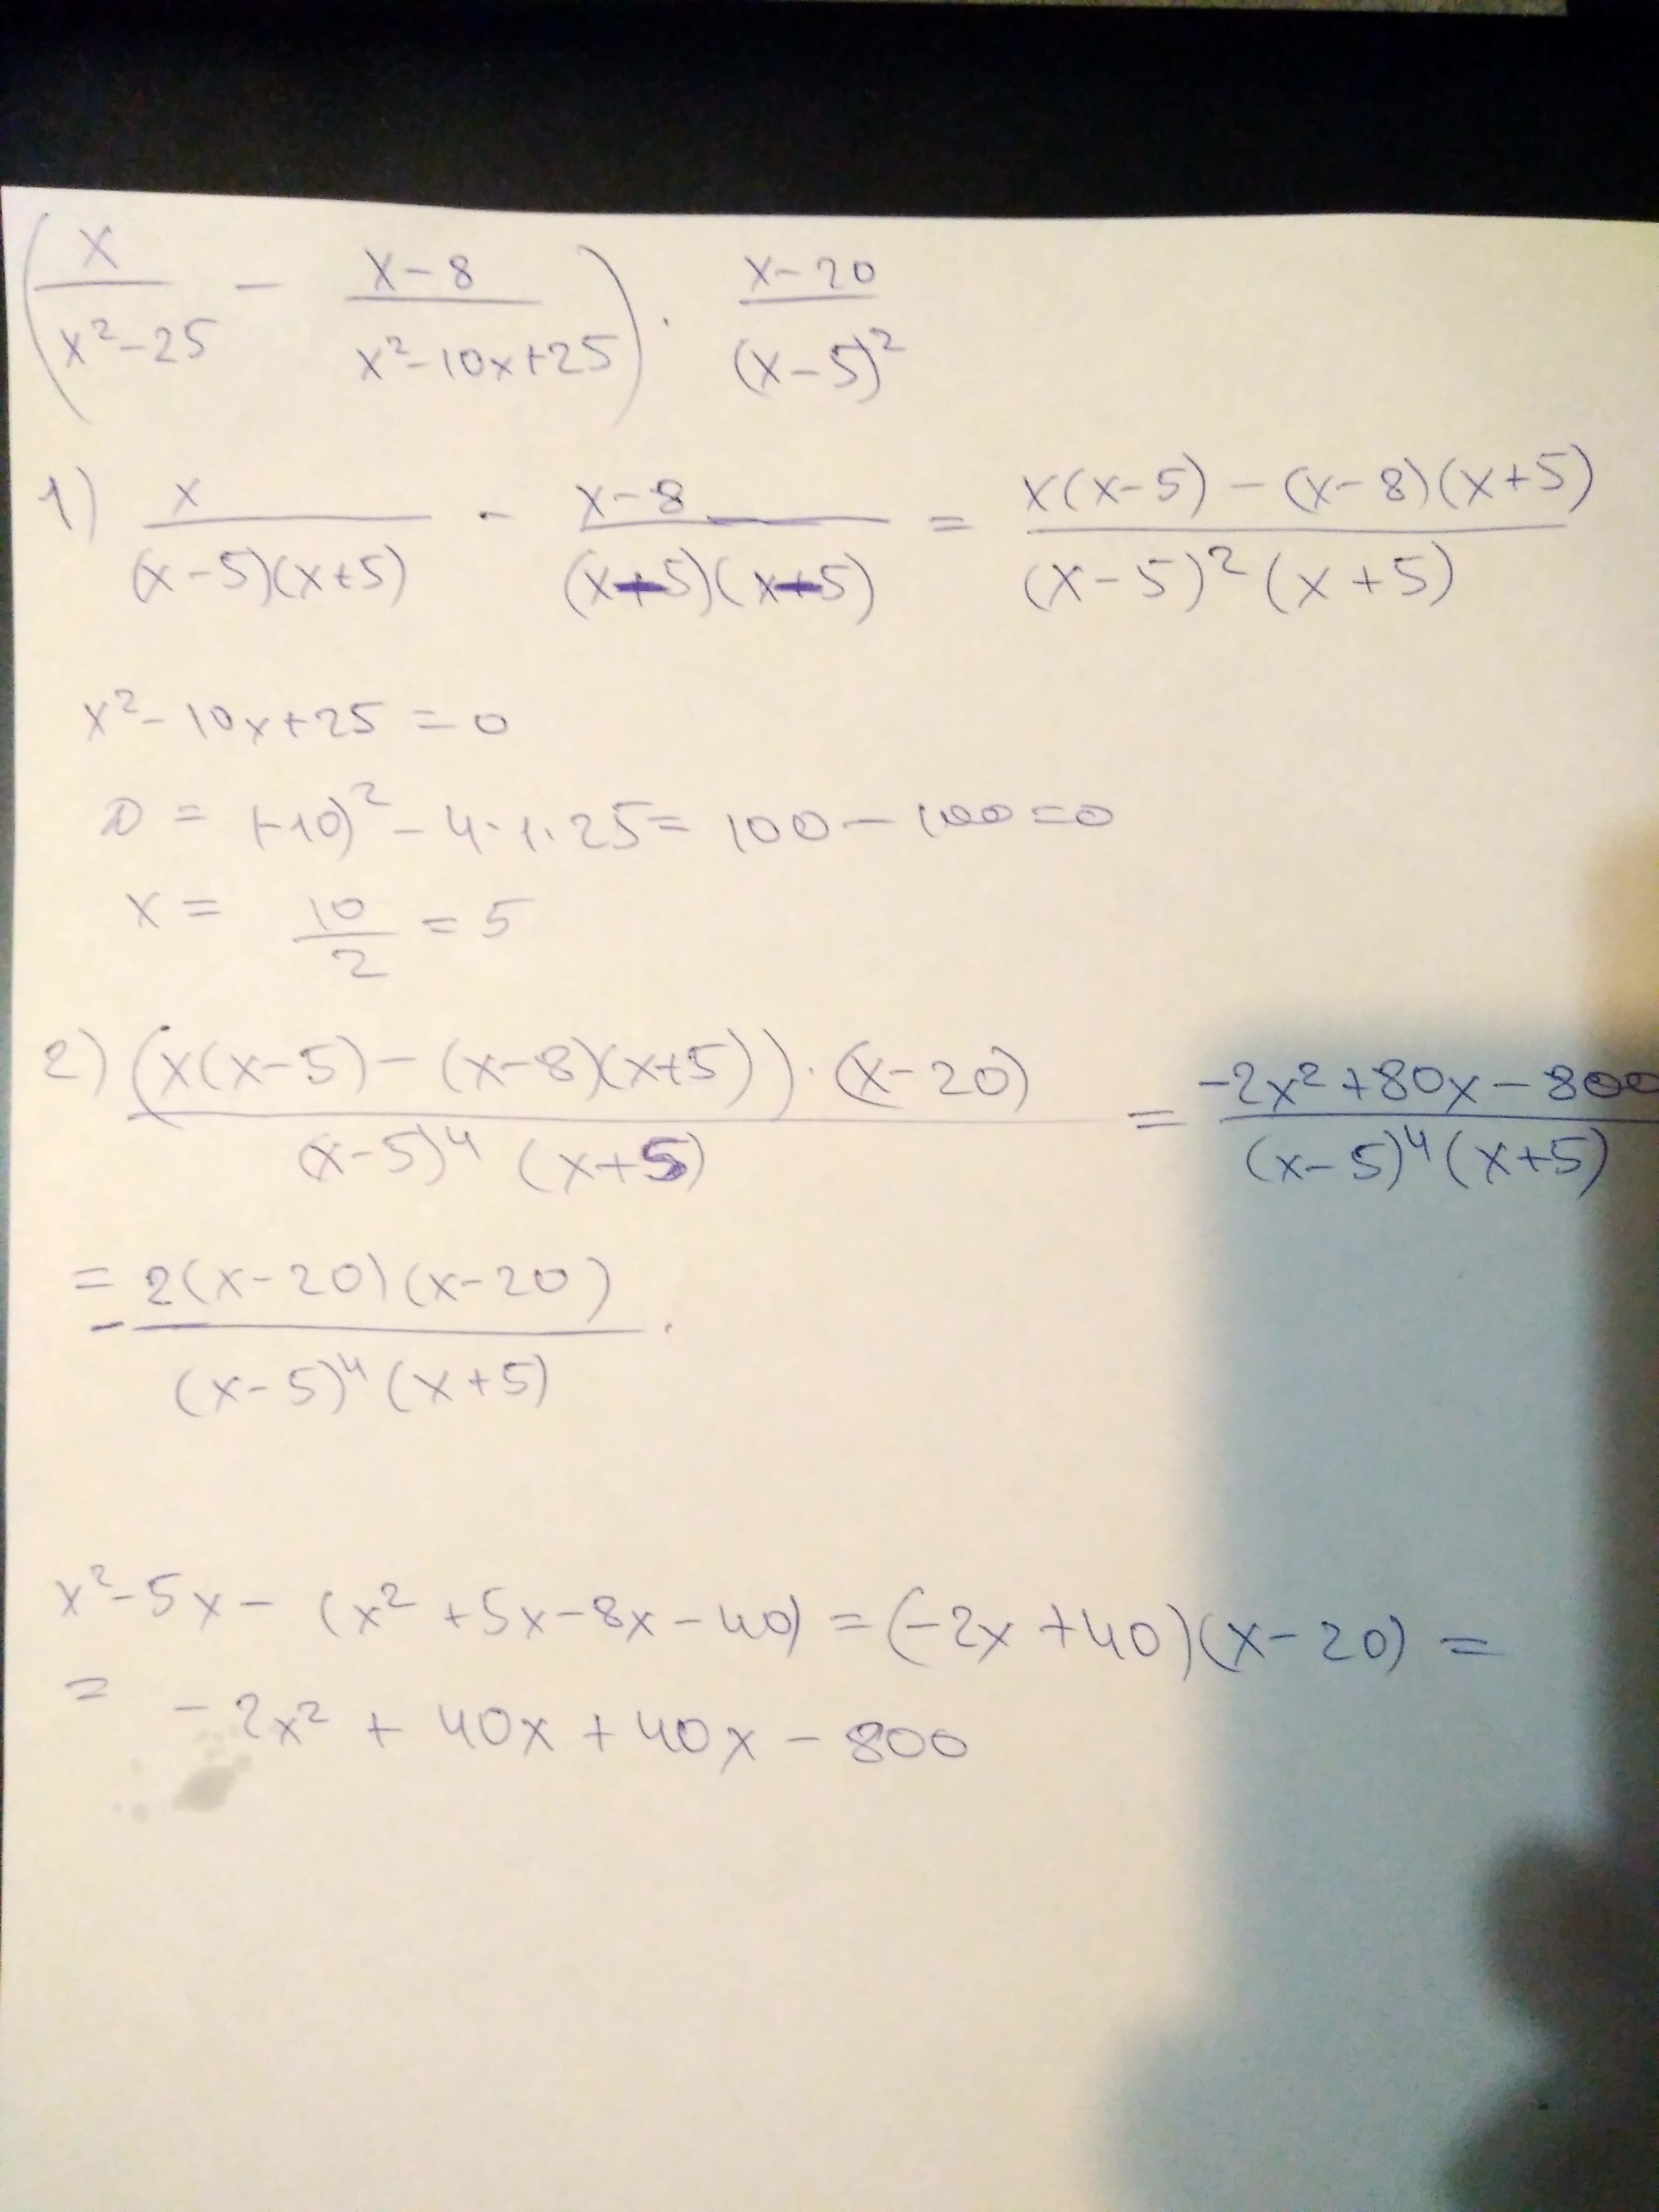 (x/(x²-25) - (x-8)/(x²-10x+25)) · (x-20)/(x-5)²
1) x/((x-5)(x+5)) - (x-8)/((x-5)(x-5)) = (x(x-5)-(x-8)(x+5))/((x-5)²(x+5))
x²-10x+25=0
D = (-10)²-4·1·25=100-100=0
x = 10/2 = 5
2) ((x(x-5)-(x-8)(x+5))·(x-20))/((x-5)⁴(x+5)) = (-2x²+80x-800)/((x-5)⁴(x+5))
= -2(x-20)(x-20)/((x-5)⁴(x+5)).
x²-5x-(x²+5x-8x-40)=(-2x+40)(x-20)=
= -2x²+40x+40x-800